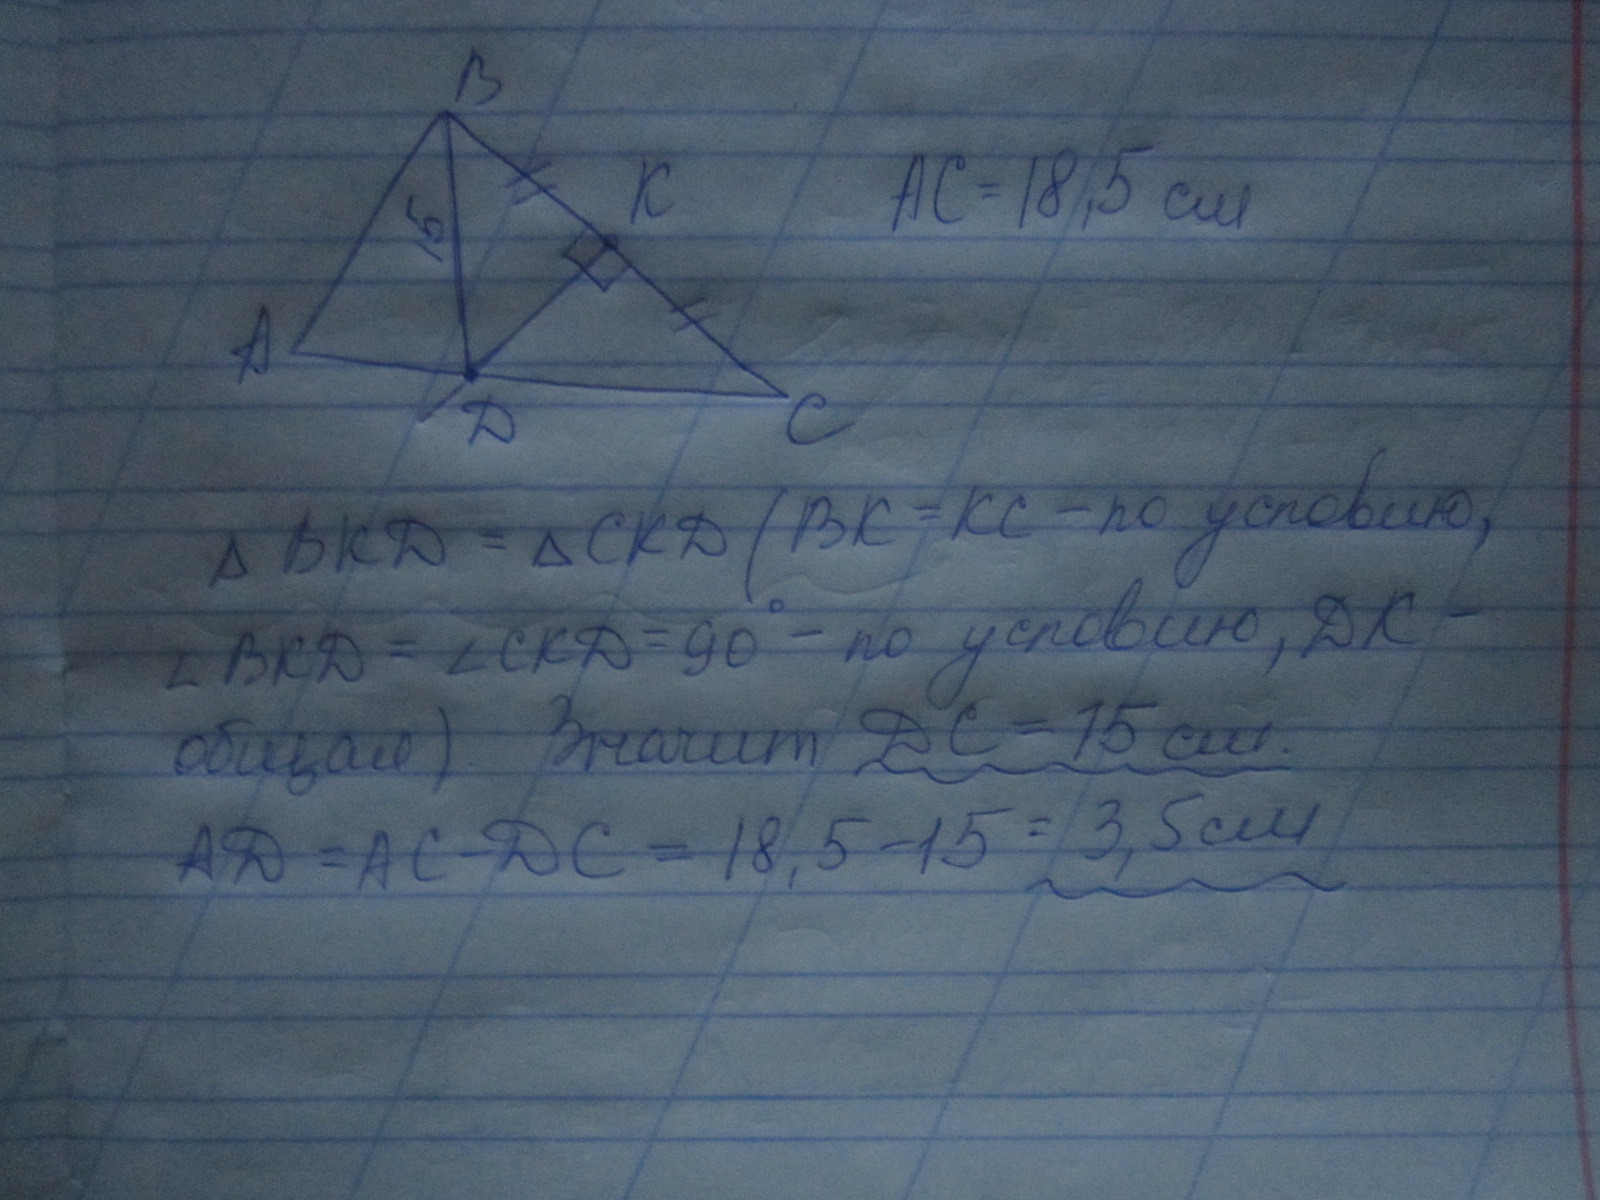 B
K
AC = 18,5 см
15
A
D
C
△ BKD = △ CKD (BK = KC – по условию,
∠ BKD = ∠ CKD = 90° – по условию, DK –
общая). Значит DC = 15 см.
AD = AC – DC = 18,5 – 15 = 3,5 см